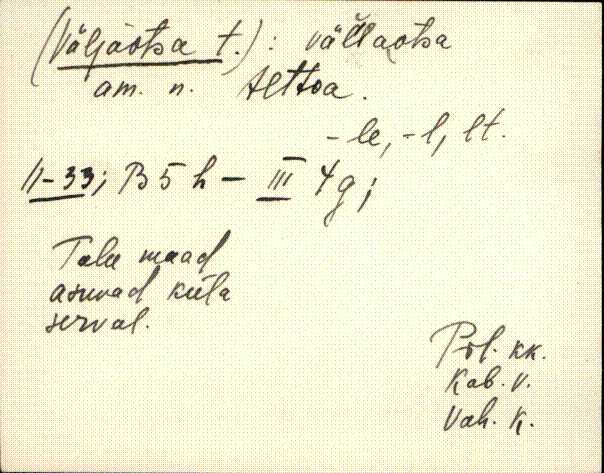 (Väljaotsa t.): vällaotsa
am. n. Alttoa.
-le, -l, lt.
11-33; B5h - III 4g;
Talu maad
asuvad küla
serval.
Pöl. kk.
Kab. v.
Vah. k.